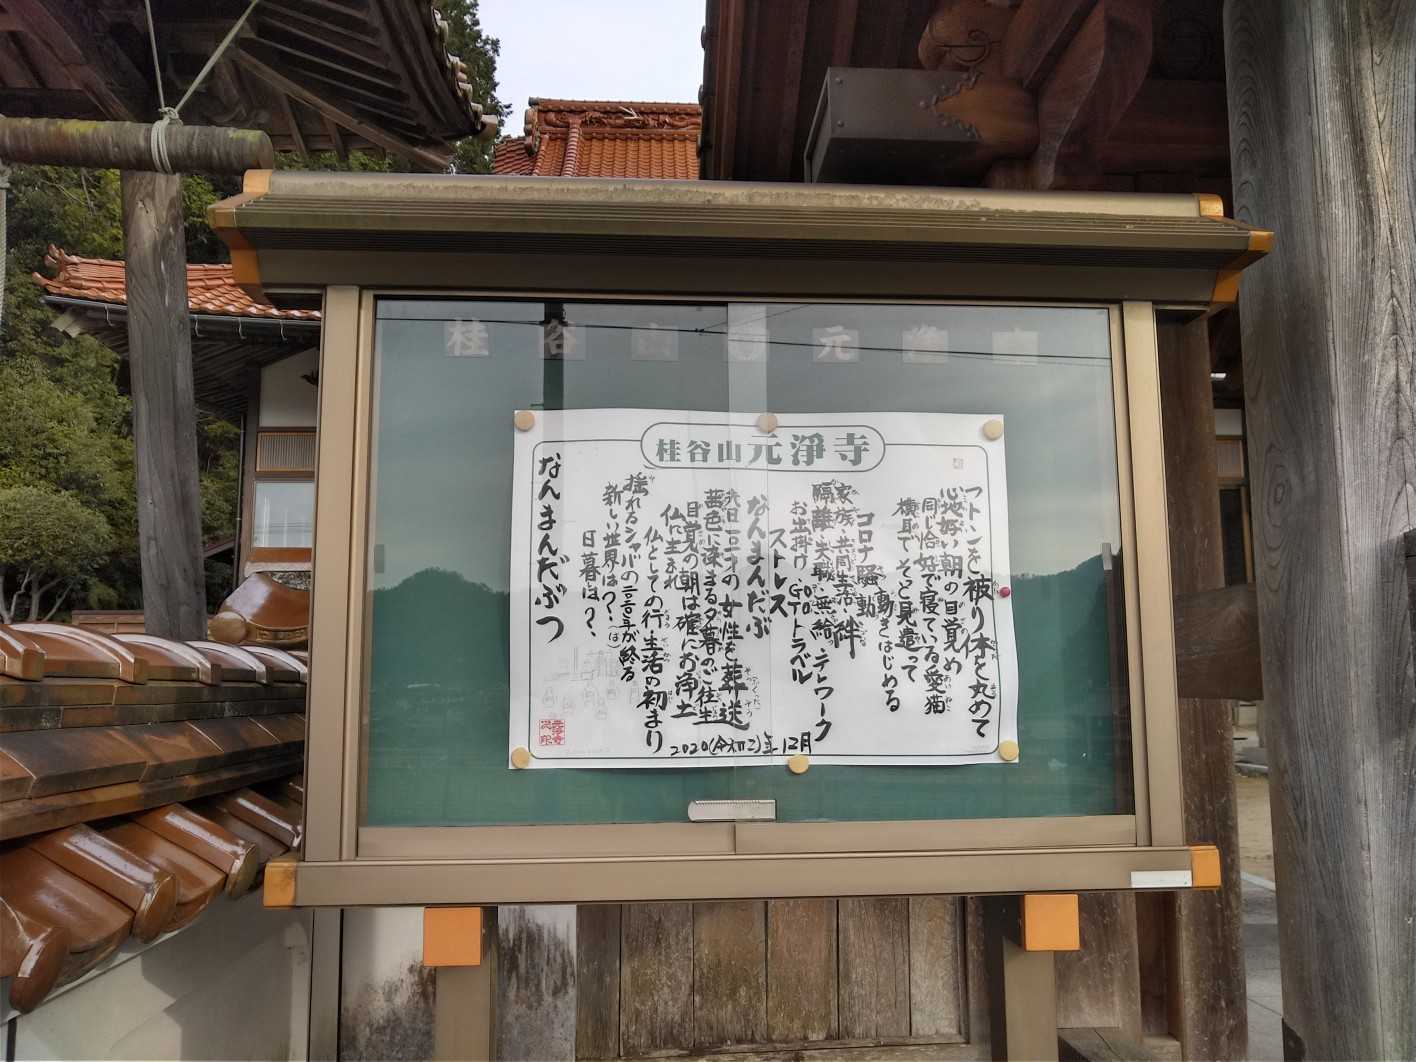 桂谷山 元淨寺
桂谷山元淨寺
フトンを被り体を丸めて
心地好い朝の目覚め
同じ恰好で寝ている愛猫
横目でそっと見遣って
動きはじめる
コロナ騒動
家族・共同生活・絆
隔離・失職・無給・テレワーク
お出掛け・GOTOトラベル
ストレス
なんまんだぶ
先日一〇一才の女性を葬送
茜色に染まる夕暮のご往生
目覚めの朝は確にお浄土
仏に生まれ
仏としての行・生活の初まり
揺れるシャバの二〇二〇年が終る
新しい世界は?・(は)
日暮は?、
なんまんだぶつ
2020(令和二)年12月